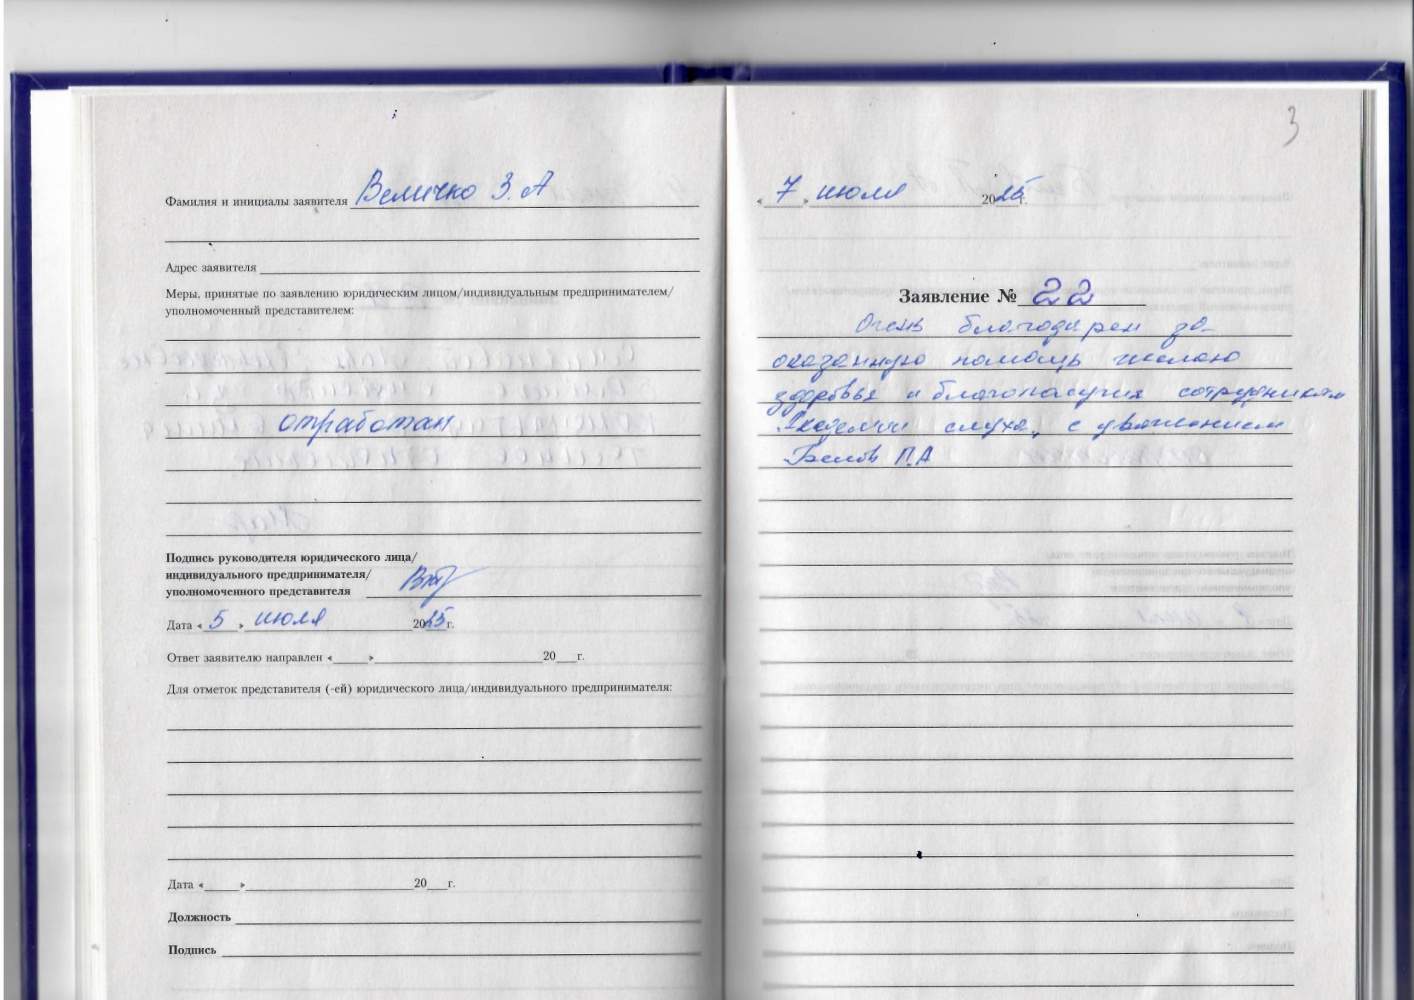 Фамилия и инициалы заявителя Величко З. А
Адрес заявителя
Меры, принятые по заявлению юридическим лицом/индивидуальным предпринимателем/
уполномоченный представителем:
отработан
Подпись руководителя юридического лица/
индивидуального предпринимателя/
уполномоченного представителя
Дата « 5 » июля 2025г.
Ответ заявителю направлен « » 20 г.
Для отметок представителя (-ей) юридического лица/индивидуального предпринимателя:
Дата « » 20 г.
Должность
Подпись
3
« 7 » июля 2025г.
Заявление № 22
Очень благодарен за
оказанную помощь желаю
здоровья и благополучия сотрудникам
Академии слуха, с уважением
Белов П.А